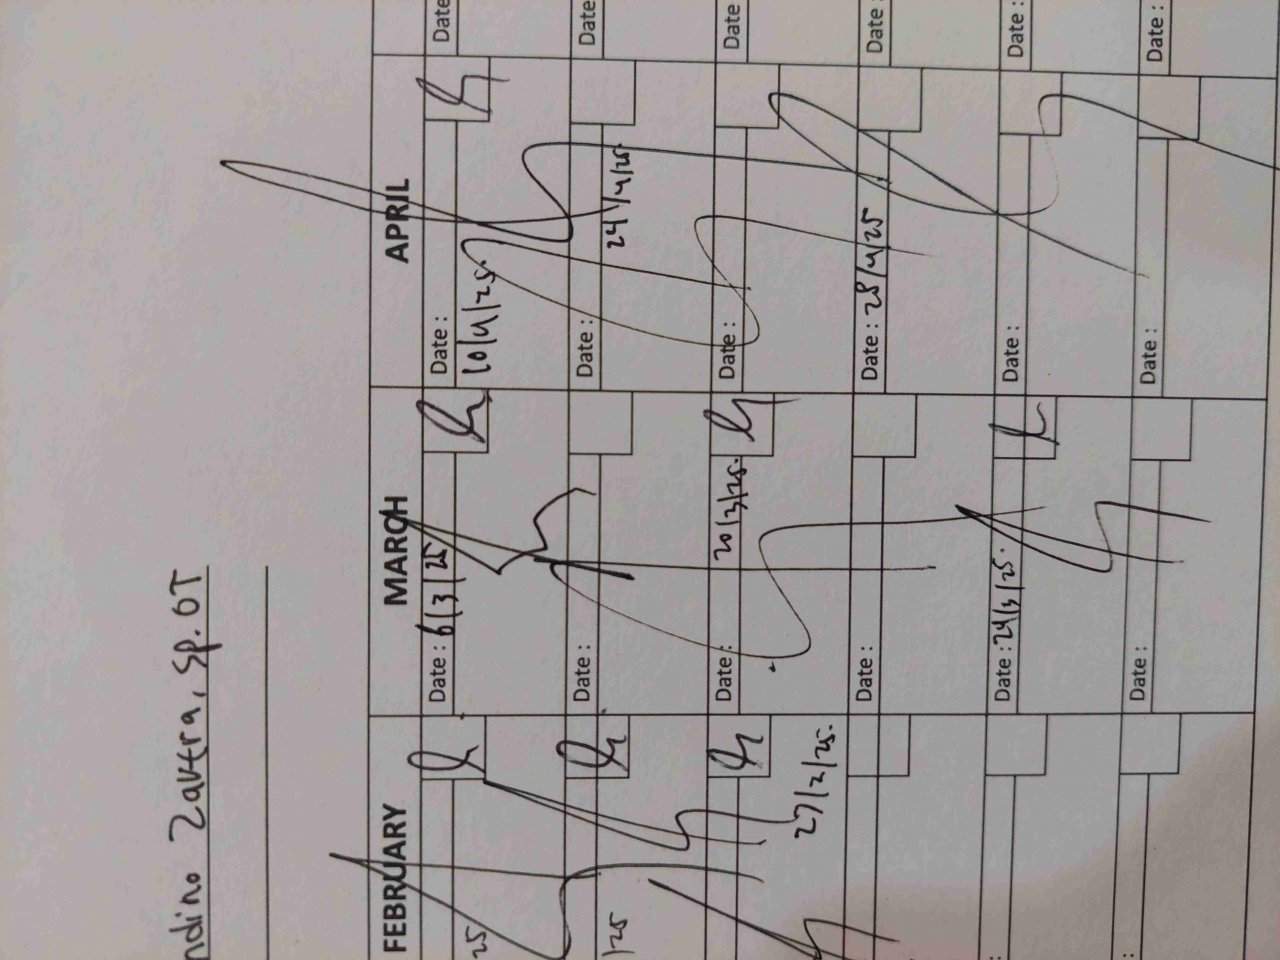 ndino Zavera, Sp. OT
FEBRUARY MARCH APRIL
Date : 6/3/25 Date : Date :
25 10/4/25.
Date : Date : Date :
/25 24/4/25.
20/3/25.
Date : Date : Date :
27/2/25.
Date : Date : 28/4/25 Date :
: Date : 24/3/25. Date : Date :
: Date : Date : Date :